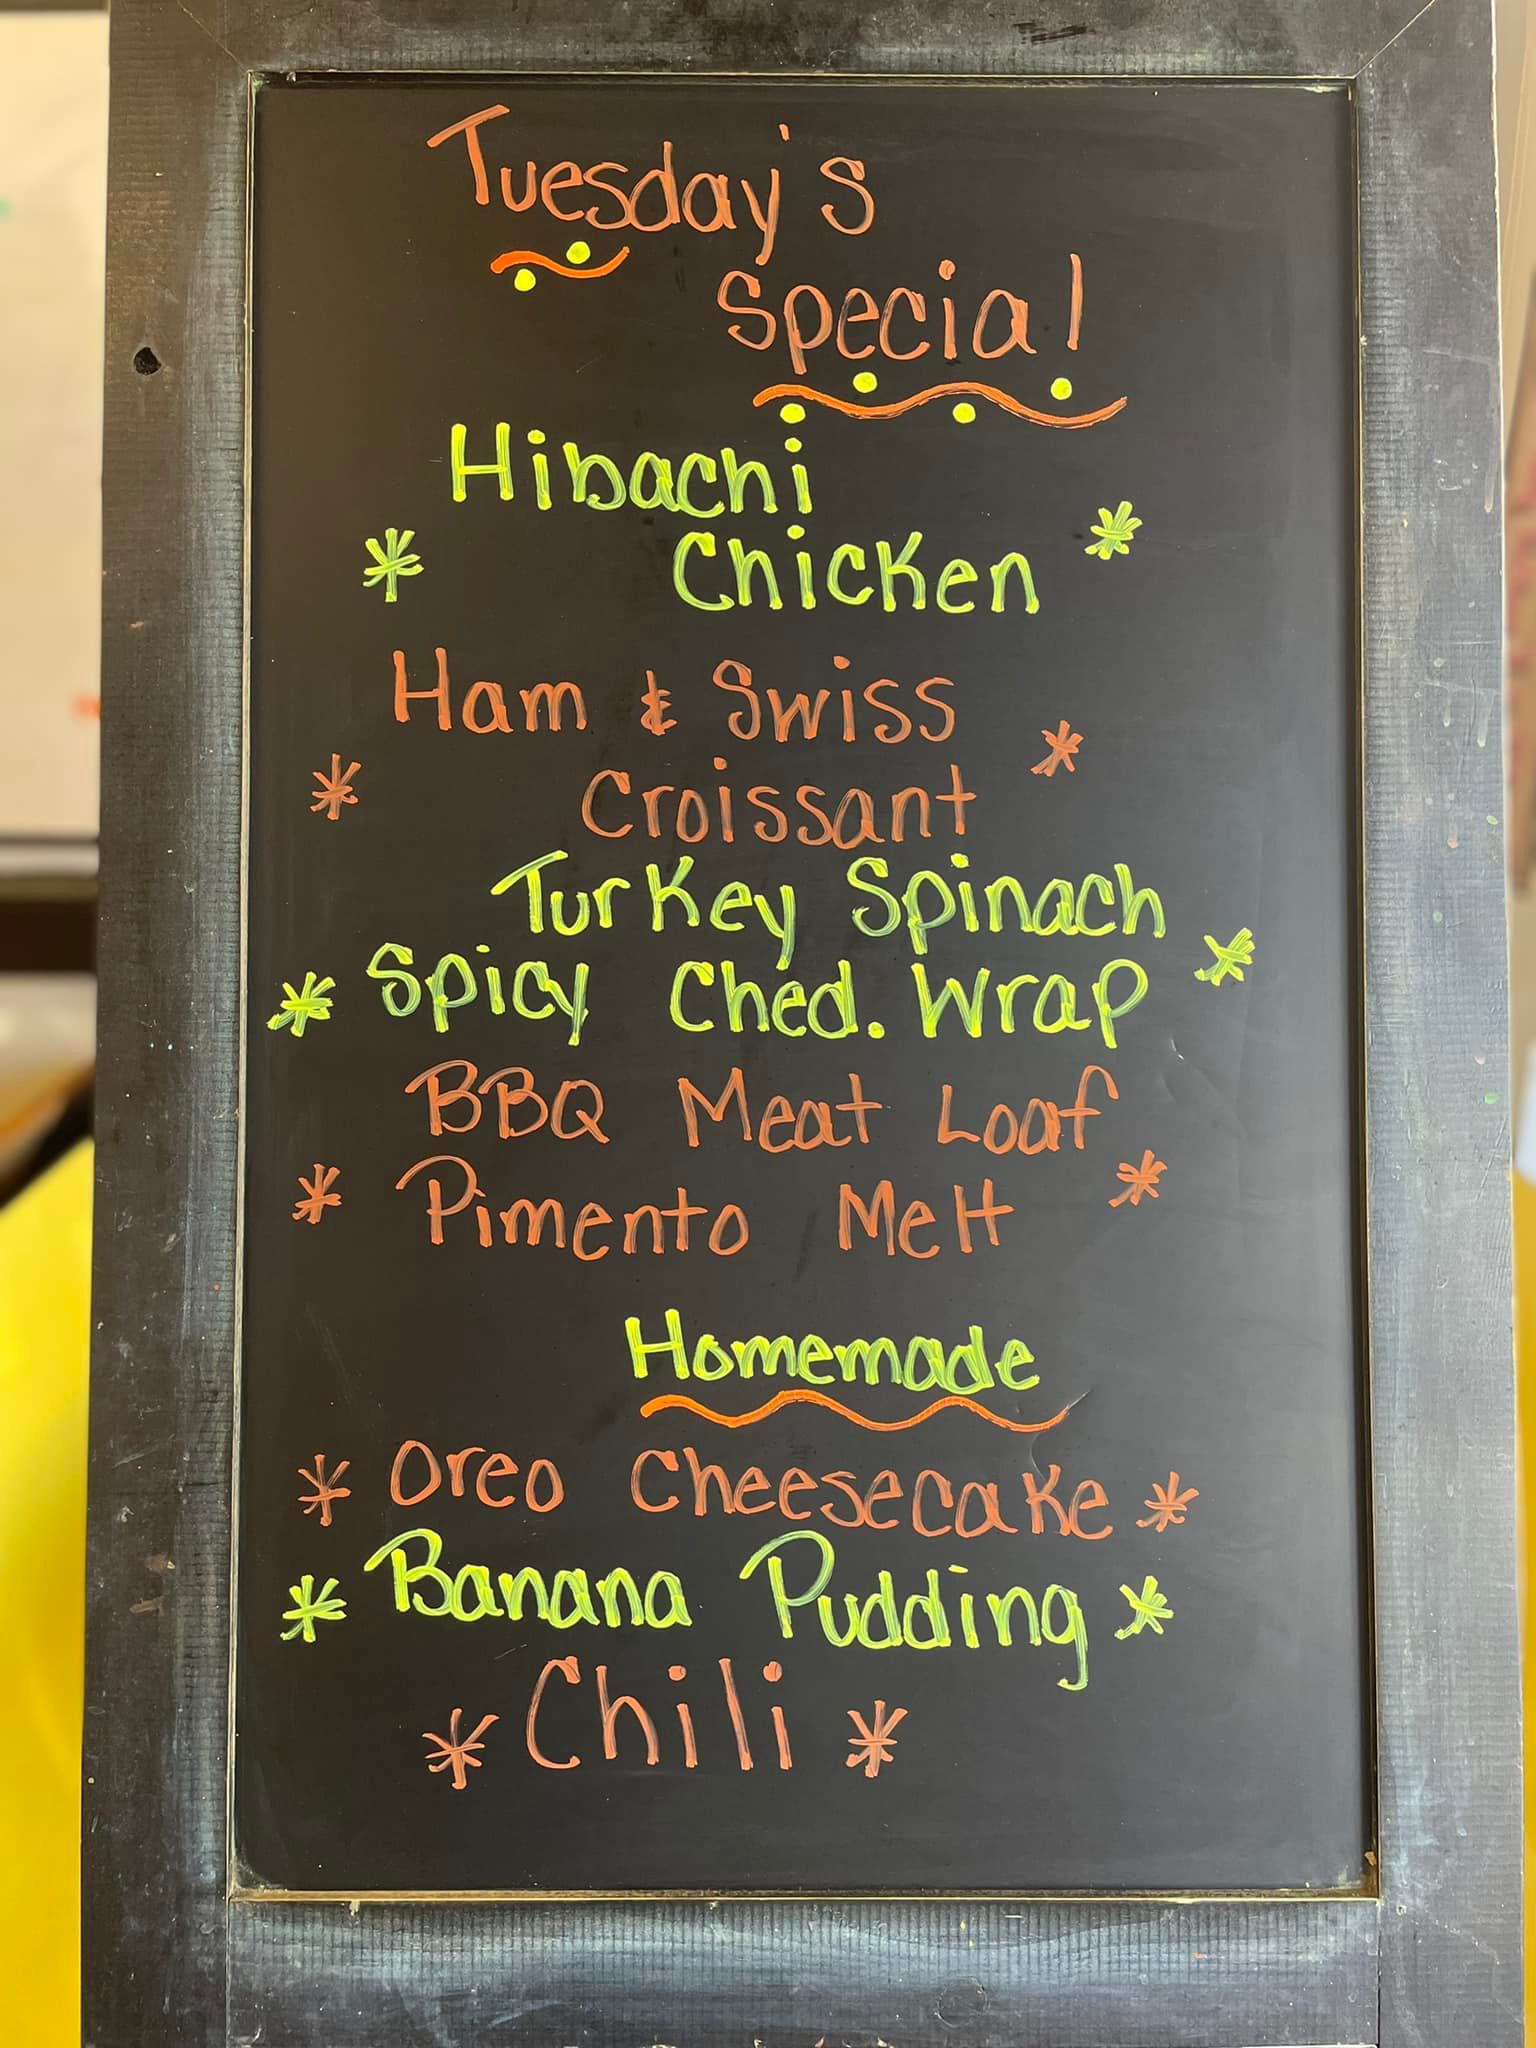 Tuesday's
Special
Hibachi
* Chicken *
Ham & Swiss
* Croissant *
Turkey Spinach
* Spicy Ched. Wrap *
BBQ Meat Loaf
* Pimento Melt *
Homemade
* Oreo Cheesecake *
* Banana Pudding *
* Chili *